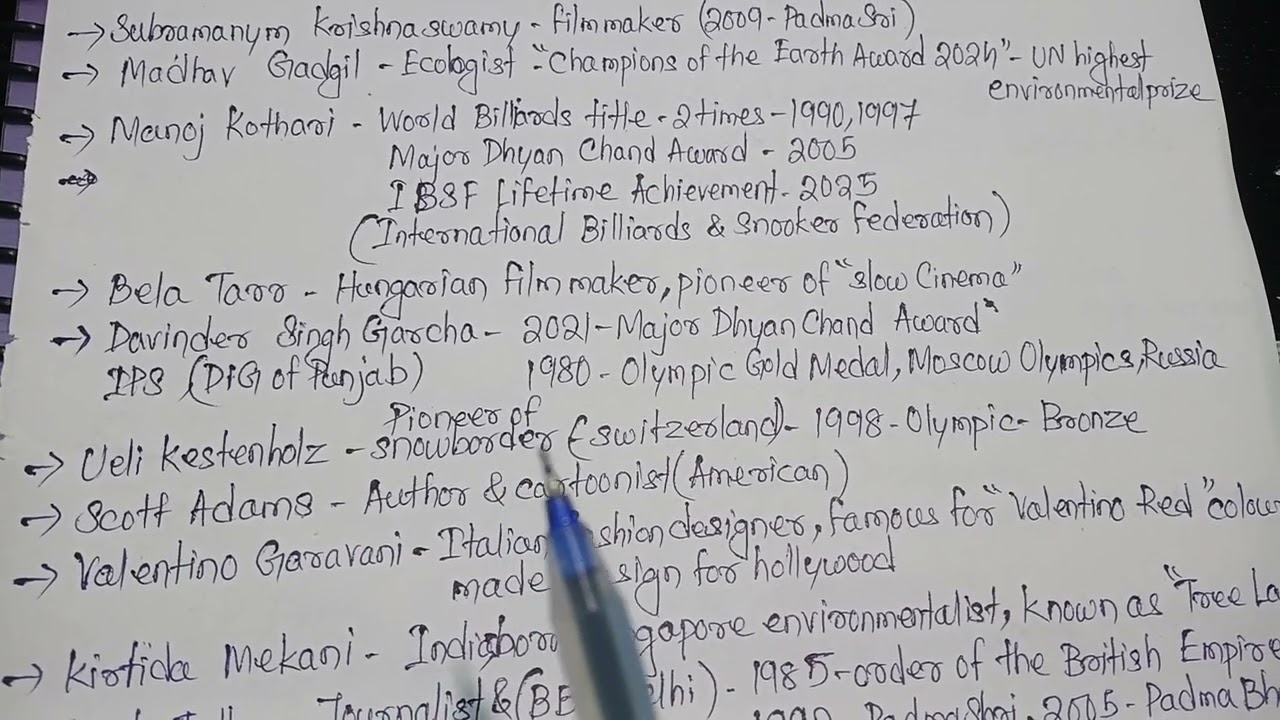 → Subramanym Krishnaswamy - filmmaker (2009 - Padma Sri)
→ Madhav Gadgil - Ecologist - "Champions of the Earth Award 2024" - UN highest
environmental prize
→ Manoj Kothari - World Billiards title - 2 times - 1990, 1997
Major Dhyan Chand Award - 2005
IBSF Lifetime Achievement - 2025
(International Billiards & Snooker Federation)
→ Bela Tarr - Hungarian filmmaker, pioneer of "slow Cinema"
→ Davinder Singh Garcha - 2021 - Major Dhyan Chand Award"
IPS (DIG of Punjab) 1980 - Olympic Gold Medal, Moscow Olympics, Russia
Pioneer of
→ Ueli Kestenholz - snowborder (switzerland) - 1998 - Olympic - Bronze
→ Scott Adams - Author & cartoonist (American)
→ Valentino Garavani - Italian designer, famous for "Valentino Red" colou
made for hollywood
→ Kirtida Mekani - environmentalist, known as "Tree La
Journalist & - 1985 - order of the British Empire
Padma Shri, 2005 - Padma Bh